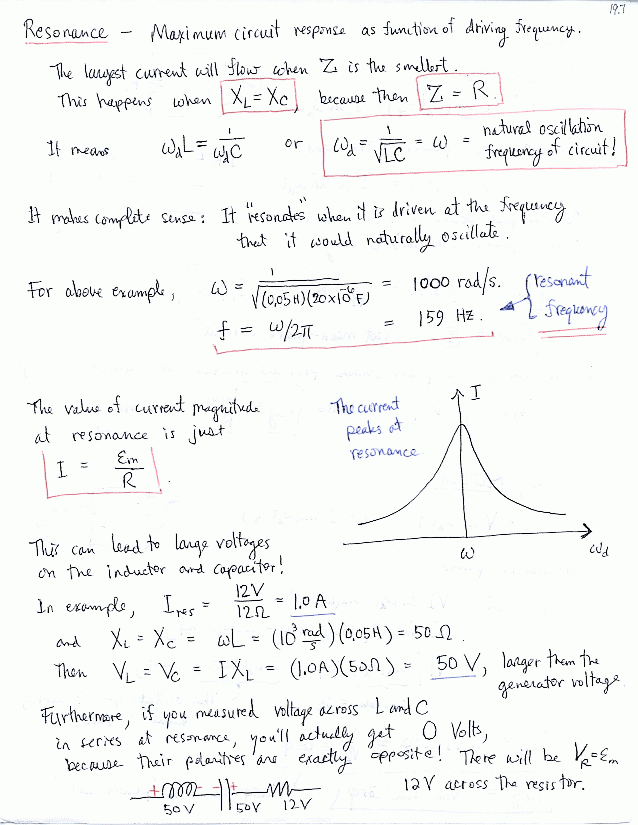 19.7
Resonance – Maximum circuit response as function of driving frequency.
The largest current will flow when Z is the smallest.
This happens when X_L = X_C, because then Z = R.
It means ω_d L = 1/(ω_d C) or ω_d = 1/√(LC) = ω = natural oscillation
frequency of circuit!
It makes complete sense: It "resonates" when it is driven at the frequency
that it would naturally oscillate.
For above example, ω = 1/√((0.05H)(20×10⁻⁶F)) = 1000 rad/s. (resonant
f = ω/2π = 159 Hz. frequency
The value of current magnitude
at resonance is just
I = ℰm/R.
The current
peaks at
resonance.
I
ω
ω_d
This can lead to large voltages
on the inductor and capacitor!
In example, I_res = 12V/12Ω = 1.0 A
and X_L = X_C = ωL = (10³ rad/s)(0.05H) = 50 Ω.
Then V_L = V_C = I X_L = (1.0A)(50Ω) = 50 V, larger them the
generator voltage
Furthermore, if you measured voltage across L and C
in series at resonance, you'll actually get 0 Volts,
because their polarities are exactly opposite! There will be V_R = ℰm
12V across the resistor.
+ − − +
50V 50V 12V